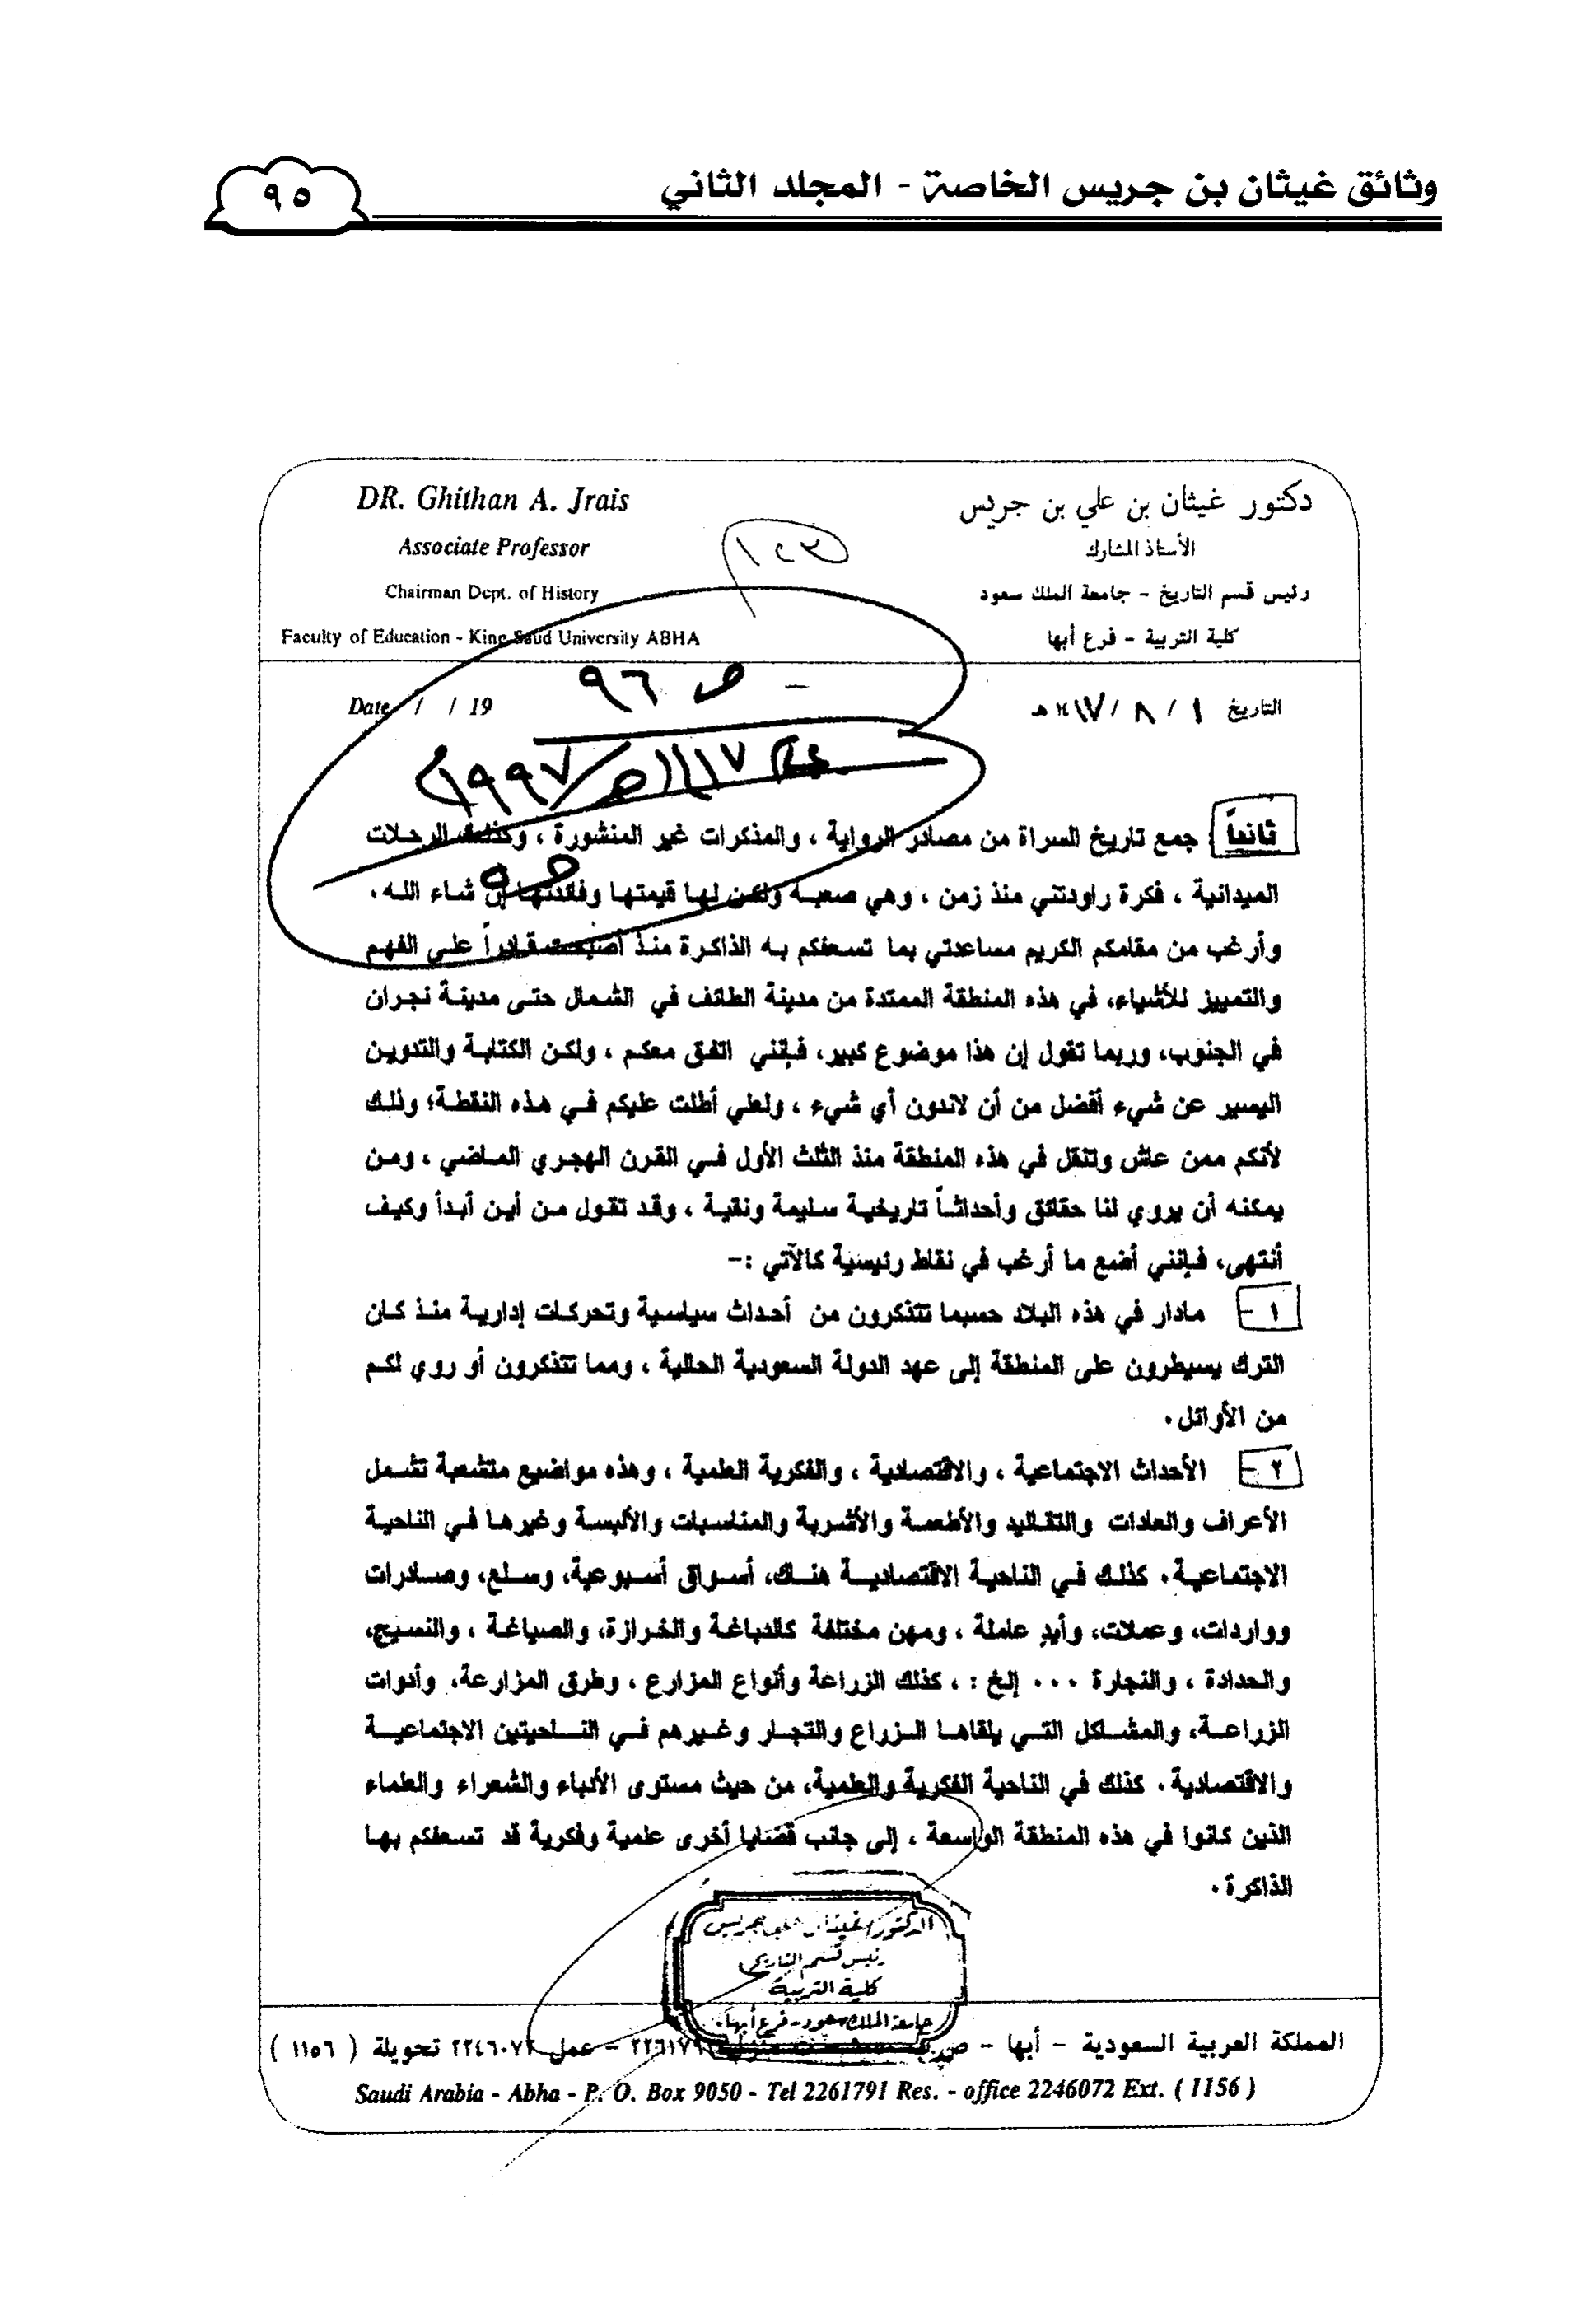 وثائق غيثان بن جريس الخاصة - المجلد الثاني
٩٥
DR. Ghithan A. Jrais
دكتور غيثان بن علي بن جريس
Associate Professor
الأستاذ المشارك
Chairman Dept. of History
رئيس قسم التاريخ - جامعة الملك سعود
Faculty of Education - King Saud University ABHA
كلية التربية - فرع أبها
ص ٩٦
Date / / 19
التاريخ ١ / ٨ / ١٤١٧ هـ
ثانياً جمع تاريخ السراة من مصادر الرواية ، والمذكرات غير المنشورة ، وكذلك الرحلات
الميدانية ، فكرة راودتني منذ زمن ، وهي صعبة ولكن لها قيمتها وفائدتها إن شاء الله .
وأرغب من مقامكم الكريم مساعدتي بما تسعفكم به الذاكرة منذ أصبحت قادراً على الفهم
والتمييز للأشياء، في هذه المنطقة الممتدة من مدينة الطائف في الشمال حتى مدينة نجران
في الجنوب، وربما تقول إن هذا موضوع كبير، فإنني اتفق معكم ، ولكن الكتابة والتدوين
اليسير عن شيء أفضل من أن لاندون أي شيء ، ولعلي أطلت عليكم في هذه النقطة؛ وذلك
لأنكم ممن عاش وتنقل في هذه المنطقة منذ الثلث الأول في القرن الهجري الماضي ، ومن
يمكنه أن يروي لنا حقائق وأحداثاً تاريخية سليمة ونقية ، وقد تقول من أين أبدأ وكيف
أنتهي، فإنني أضع ما أرغب في نقاط رئيسية كالآتي :-
١ - مادار في هذه البلاد حسبما تتذكرون من أحداث سياسية وتحركات إدارية منذ كان
الترك يسيطرون على المنطقة إلى عهد الدولة السعودية الحالية ، ومما تتذكرون أو روي لكم
من الأوائل .
٢ - الأحداث الاجتماعية ، والاقتصادية ، والفكرية العلمية ، وهذه مواضيع متشعبة تشمل
الأعراف والعادات والتقاليد والأطعمة والأشربة والمناسبات والألبسة وغيرها في الناحية
الاجتماعية . كذلك في الناحية الاقتصادية هناك، أسواق أسبوعية، وسلع، وصادرات
وواردات، وعملات، وأيدٍ عاملة ، ومهن مختلفة كالدباغة والخرازة، والصياغة ، والنسيج،
والحدادة ، والنجارة ... إلخ : ، كذلك الزراعة وأنواع المزارع ، وطرق المزارعة، وأدوات
الزراعة، والمشاكل التي يلقاها الزراع والتجار وغيرهم في الناحيتين الاجتماعية
والاقتصادية . كذلك في الناحية الفكرية والعلمية، من حيث مستوى الأدباء والشعراء والعلماء
الذين كانوا في هذه المنطقة الواسعة ، إلى جانب قضايا أخرى علمية وفكرية قد تسعفكم بها
الذاكرة .
الدكتور/ غيثان علي جريس
رئيس قسم التاريخ
كلية التربية
جامعة الملك سعود - فرع أبها
المملكة العربية السعودية - أبها - - عمل ٢٢٤٦٠٧٢ تحويلة ( ١١٥٦ )
Saudi Arabia - Abha - P. O. Box 9050 - Tel 2261791 Res. - office 2246072 Ext. ( 1156 )